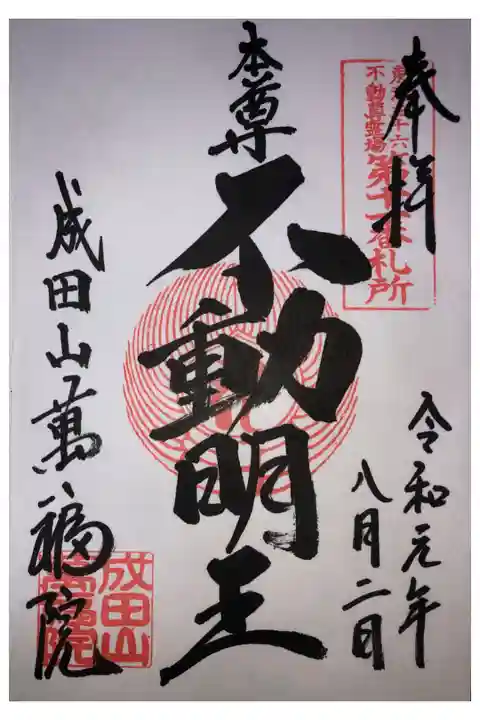 奉拝
不動尊霊場
第十一番札所
令和元年
八月二日
本尊
不動明王
成田山萬福院
成田山